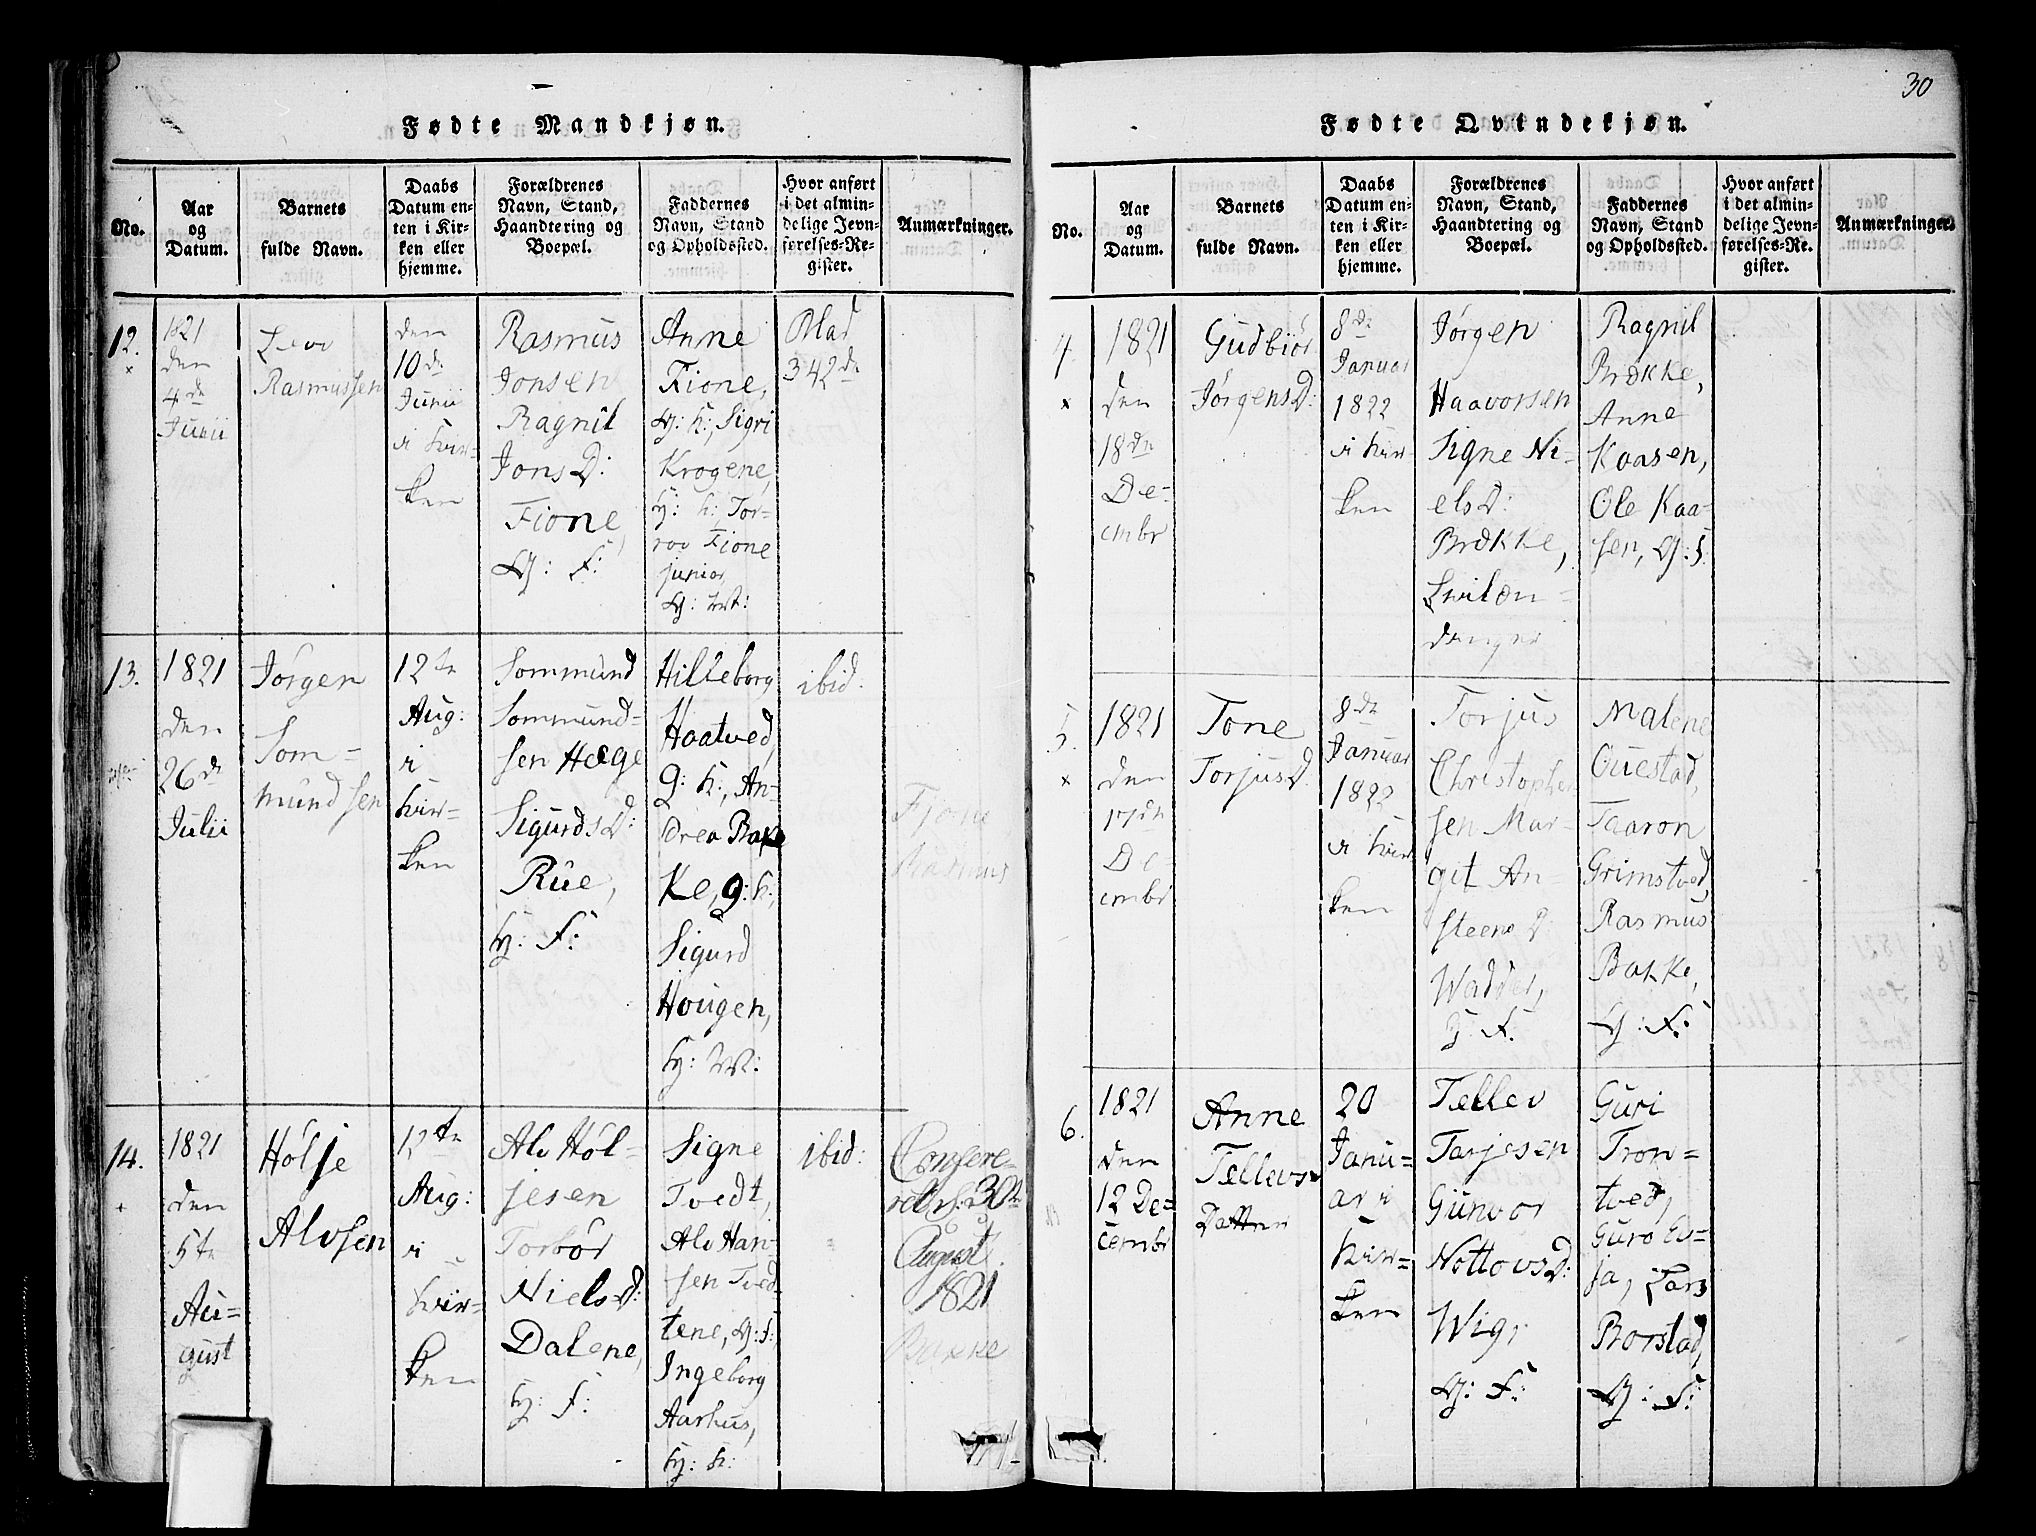 30
Fødte Mandkjøn.
No.
Aar
og
Datum.
Barnets
fulde Navn.
Daabs
Datum en-
ten i Kir-
ken eller
hjemme.
Forældrenes
Navn, Stand,
Haandtering og
Boepæl.
Faddernes
Navn, Stand
og Opholdssted.
Hvor anført
i det almin-
delige Jevn-
førelses-Re-
gister.
Anmærkninger.
12.
×
1821
den
4de
Junii
Rasmussen
den
10de
Junii
i Kir-
ken
Rasmus
Jonsen
Ragnil
Jons D:
Fione,
G: F:
Anne
Fione,
G: K:, Sigri
Krogene,
G: K: Tor-
rov Fione
junior
G: M:
Blad
342de
13.
1821
den
26de
Julii
Jørgen
Som=
mundsen
12te
Aug:
i
Kir=
ken
Sommund
Sommund=
sen Hæge
Sigurds D:
Rúe,
G: F:
Hilleborg
Haatved,
g: K:, An=
drea Bak
ke, g: K:
Sigurd
Hougen,
G: M:
ibid.
Fjone
Rasmus
14.
+
1821
den
5te
Au=
gust
Hølje
Alvsen
12te
Aug:
i
Kir=
ken
Alv Høl=
jesen
Torbør
Niels D:
Dalene,
G: F:
Signe
Tvedt,
Alv Han
sen Tved
tene, G: F:
Ingeborg
Aarhus,
G: K:
ibid:
30te
August
1821
Bakke
Fødte Qvindekjøn.
No.
Aar
og
Datum.
Barnets
fulde Navn.
Daabs
Datum en-
ten i Kir-
ken eller
hjemme.
Forældrenes
Navn, Stand,
Haandtering og
Boepæl.
Faddernes
Navn, Stand
og Opholdssted.
Hvor anført
i det almin-
delige Jevn-
førelses-Re-
gister.
Anmærkninger.
4.
×
1821
den
18de
De=
cmbr
Gudbiør
Jørgens D:
8de
Januar
1822
i Kir=
ken
Jørgen
Haavorsen
Signe Ni=
els D:
Brøkke,
Ragnil
Brøkke,
Anne
Kaasen,
Ole Kaa=
sen, G: F:
5.
×
1821
den
17de
De=
cmbr
Tone
Torjus D.
8de
Januar
1822
i Kir
ken
Torjus
Christopher
sen Mar=
git An=
steens D
Wadder,
G: F:
Malene
Ouestad,
Taaron
Grimstved,
Rasmus
Bakke,
G: F:
6.
1821
den
12 De=
cembr
Anne
Tellevs=
Datter
20
Janu=
ar i
Kir=
ken
Tellev
Tarjesen
Gunvor
Nottovs D:
Wig,
G: F:
Guri
Tron=
tved,
Guro Ev=
ja, Lars
Borstad,
G: F: